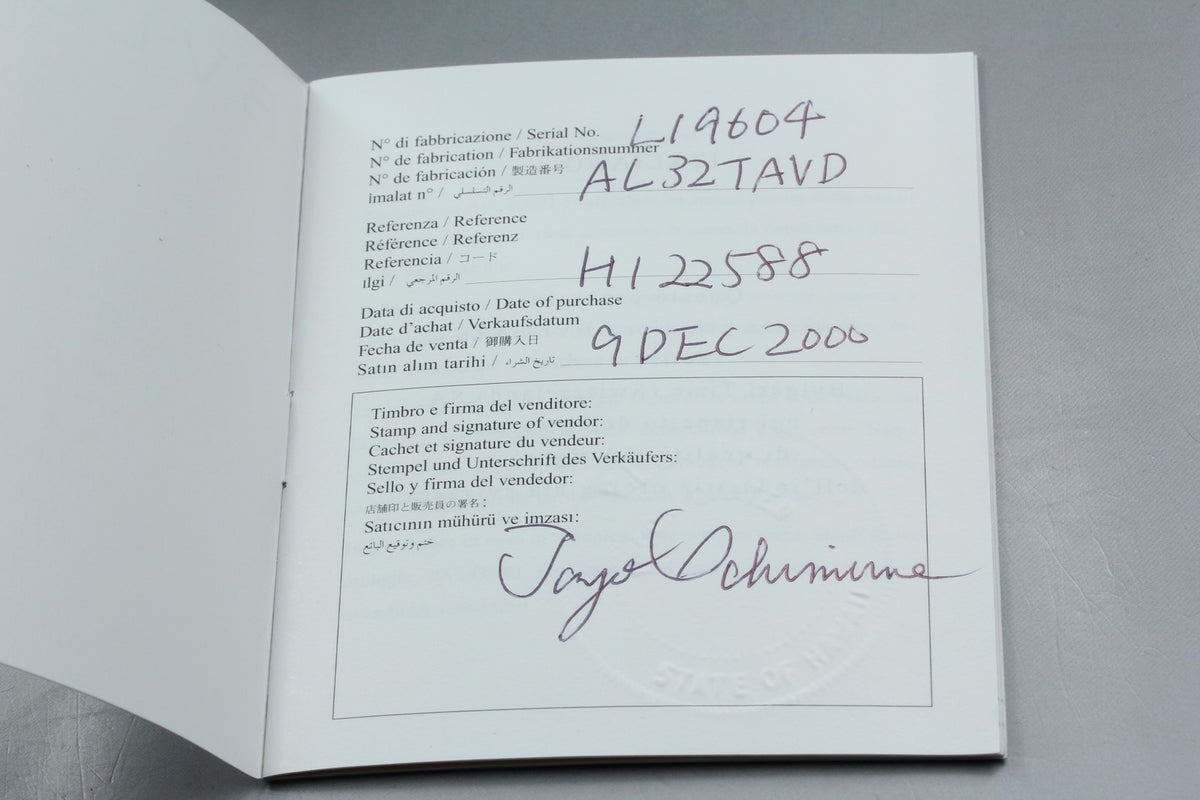 N° di fabbricazione / Serial No.
L19604
N° de fabrication / Fabrikationsnummer
N° de fabricación / 製造番号
AL32TAVD
İmalat n° / الرقم التسلسلي
Referenza / Reference
Référence / Referenz
Referencia / コード
H122588
ılgi / الرقم المرجعي
Data di acquisto / Date of purchase
Date d'achat / Verkaufsdatum
Fecha de venta / 御購入日
9 DEC 2000
Satın alım tarihi / تاريخ الشراء
Timbro e firma del venditore:
Stamp and signature of vendor:
Cachet et signature du vendeur:
Stempel und Unterschrift des Verkäufers:
Sello y firma del vendedor:
店舗印と販売員の署名：
Satıcının mühürü ve imzası:
ختم وتوقيع البائع
STATE OF HAWAII